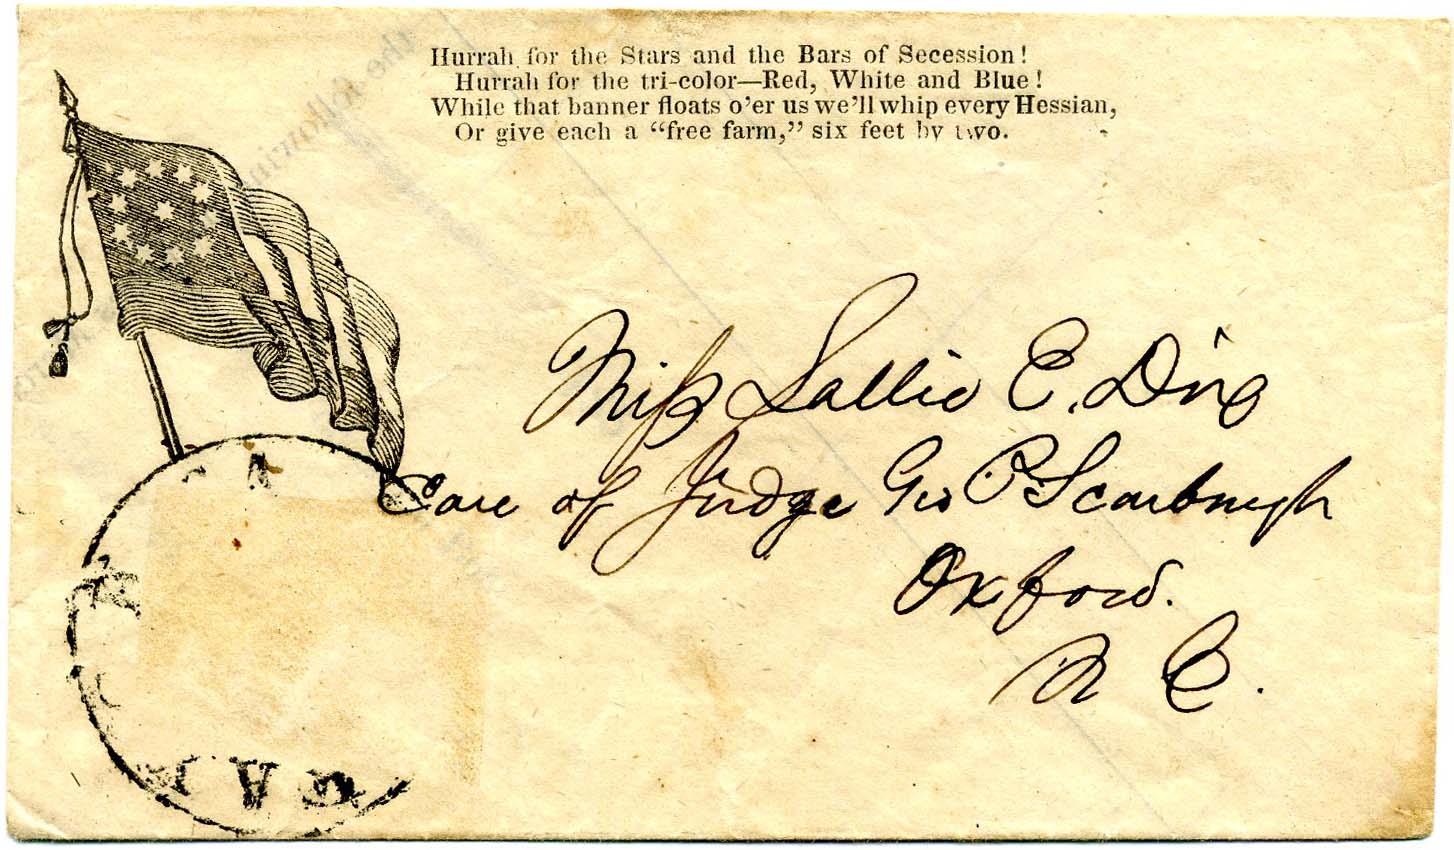 Hurrah for the Stars and the Bars of Secession!
Hurrah for the tri-color—Red, White and Blue!
While that banner floats o'er us we'll whip every Hessian,
Or give each a “free farm,” six feet by two.
Miss Sallie E.
Care of Judge Geo P Scarbrugh
Oxford.
N C.
GA